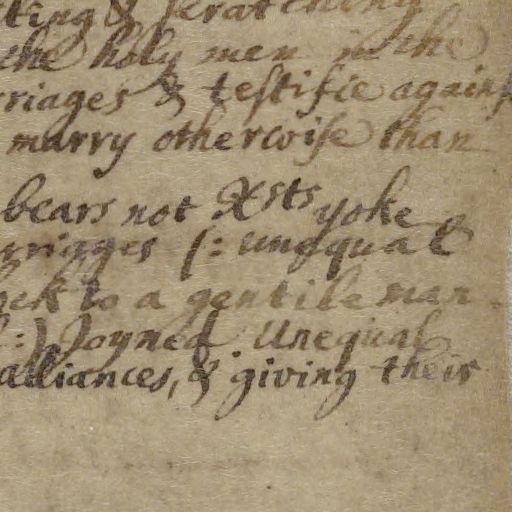 king & scratching
the holy men in the
rriages & testifie against
marry otherwise than
bears not Xsts yoke
arriages (: unequal
ock to a gentile man
:) Joyned unequal
alliances, & giving their